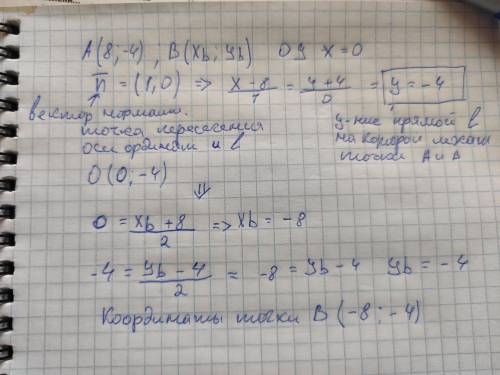 A(8;-4) ; B(xb; yb) ОУ x=0
n̅ = (1,0) => (x-8)/1 = (y+4)/0 = y=-4
вектор нормали.
точка пересесения
оси ординат и l
у-ние прямой l
на которой лежат
точки А и А
O(0; -4)
⇓
0 = (xb+8)/2 => xb = -8
-4 = (yb-4)/2 = -8 = yb-4 yb = -4
Координаты точки B(-8; -4)